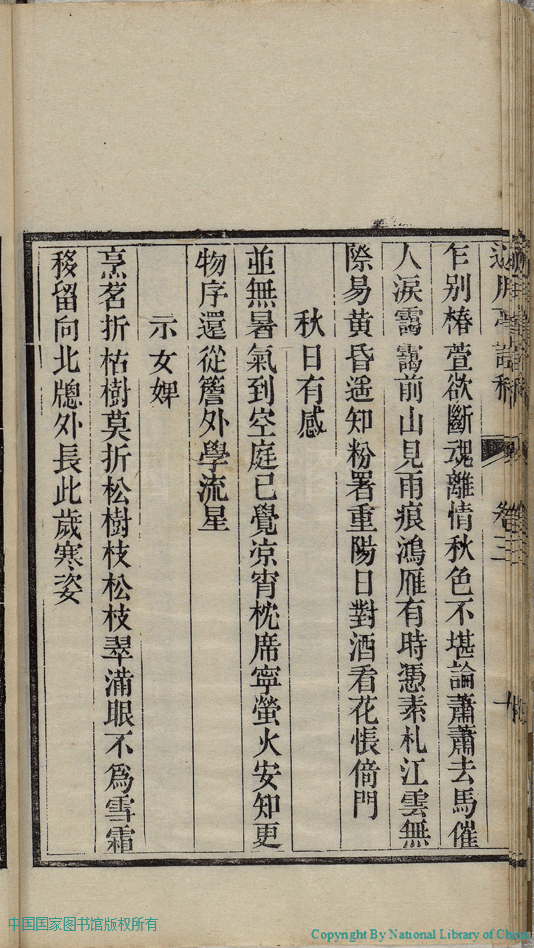 卷三
乍别椿萱欲斷魂離情秋色不堪論蕭蕭去馬催
人淚靄靄前山見雨痕鴻雁有時憑素札江雲無
際易黃昏遥知粉署重陽日對酒看花悵倚門
秋日有感
並無暑氣到空庭已覺凉宵枕席寧螢火安知更
物序還從簷外學流星
示女婢
烹茗折枯樹莫折松樹枝松枝翠滿眼不爲雪霜
移留向北牕外長此歲寒姿
中国国家图书馆版权所有
Copyright By National Library of China